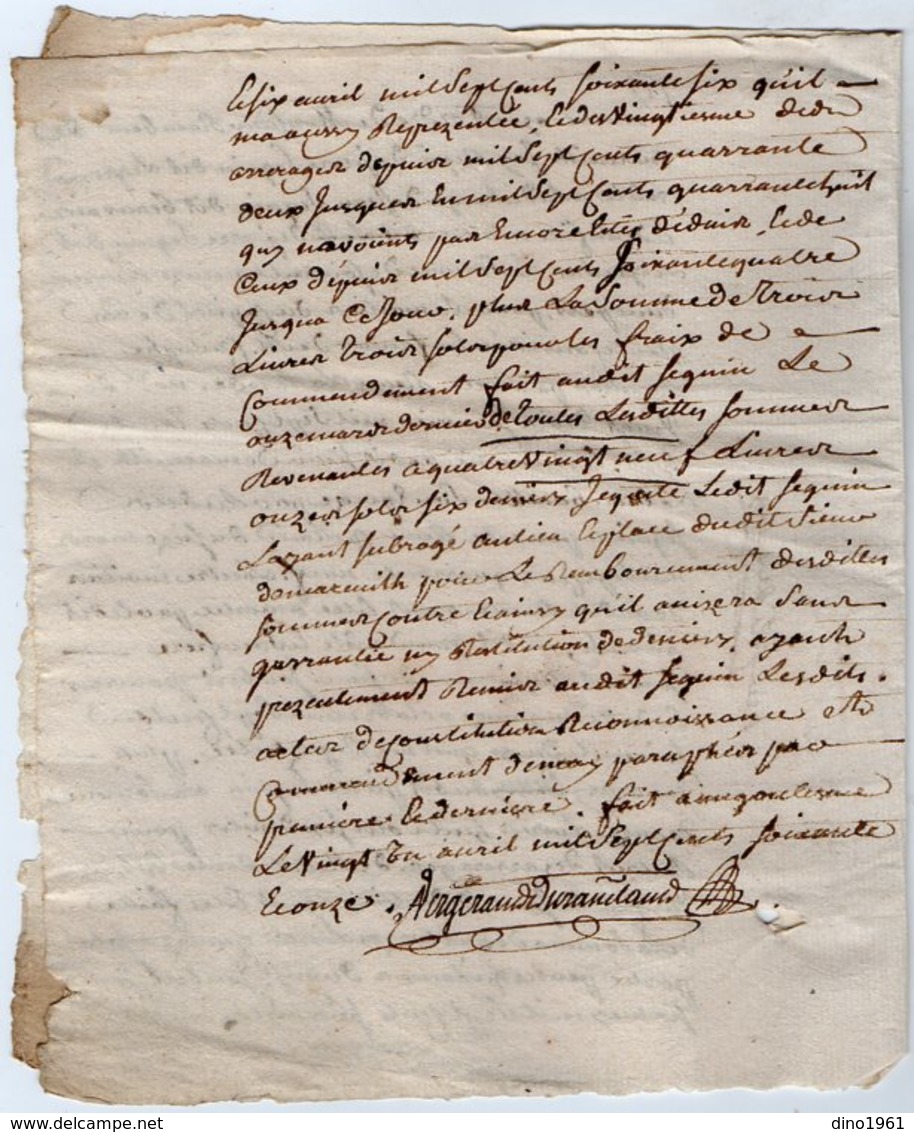 le six avril mil sept cents soixante six qu'il
ma aussy Reprezentée, le des vingtiesme desd
arrerages depuis mil sept cents quarrante
deux jusques En mil sept cents quarrante huit
quy navoients pas Encore Etés déduis, le de
Ceux dépuis mil sept cents soixante quatre
jusqua Ce jour, plus La Somme de trois
Livres trois sols pour les fraix de
Commendement fait audit seguin Le
onze mars dernier de toutes Lesdittes sommes
Revenantes a quatre vingt neuf Livres
onze sols six deniers Jequite Ledit seguin
Layant subrogé au lieu Et place dudit Sieur
demareuilh pour Le Remboursement desdittes
sommes contre Et ainsy qu'il avisera Sans
garrantie ny Restitution de deniers, ayant
prezentement Remis audit seguin Lesdits
actes de constitution Reconnoissance et
Commendement de moy paraphés par
premiere Et derniere. fait a angoulesme
Le Vingt Un avril mil Sept Cents soixante
Et onze.
dino1961